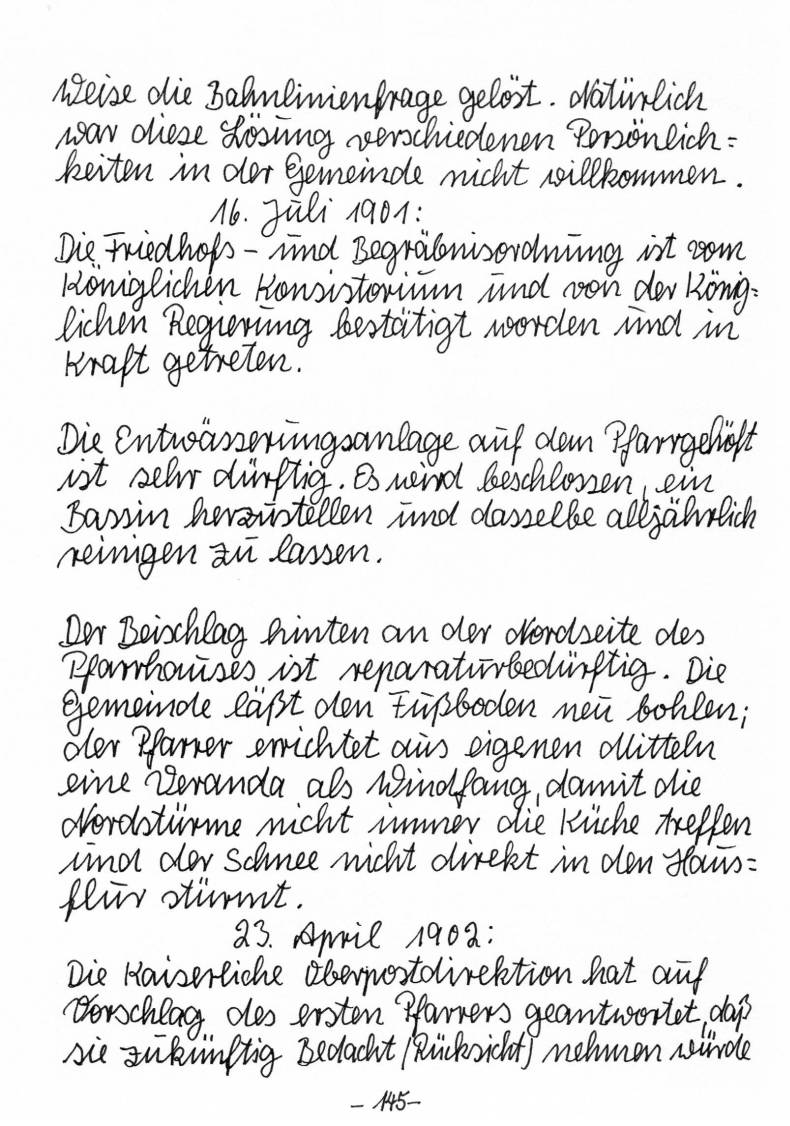 Weise die Bahnlinienfrage gelöst. Natürlich
war diese Lösung verschiedenen Persönlich=
keiten in der Gemeinde nicht willkommen.
16. Juli 1901:
Die Friedhofs- und Begräbnisordnung ist vom
Königlichen Konsistorium und von der König=
lichen Regierung bestätigt worden und in
Kraft getreten.
Die Entwässerungsanlage auf dem Pfarrgehöft
ist sehr dürftig. Es wird beschlossen, ein
Bassin herzustellen und dasselbe alljährlich
reinigen zu lassen.
Der Beischlag hinten an der Nordseite des
Pfarrhauses ist reparaturbedürftig. Die
Gemeinde läßt den Fußboden neu bohlen;
der Pfarrer errichtet aus eigenen Mitteln
eine Veranda als Windfang, damit die
Nordstürme nicht immer die Küche treffen
und der Schnee nicht direkt in den Haus=
flur stürmt.
23. April 1902:
Die Kaiserliche Oberpostdirektion hat auf
Vorschlag des ersten Pfarrers geantwortet, daß
sie zukünftig Bedacht (Rücksicht) nehmen würde
- 145 -